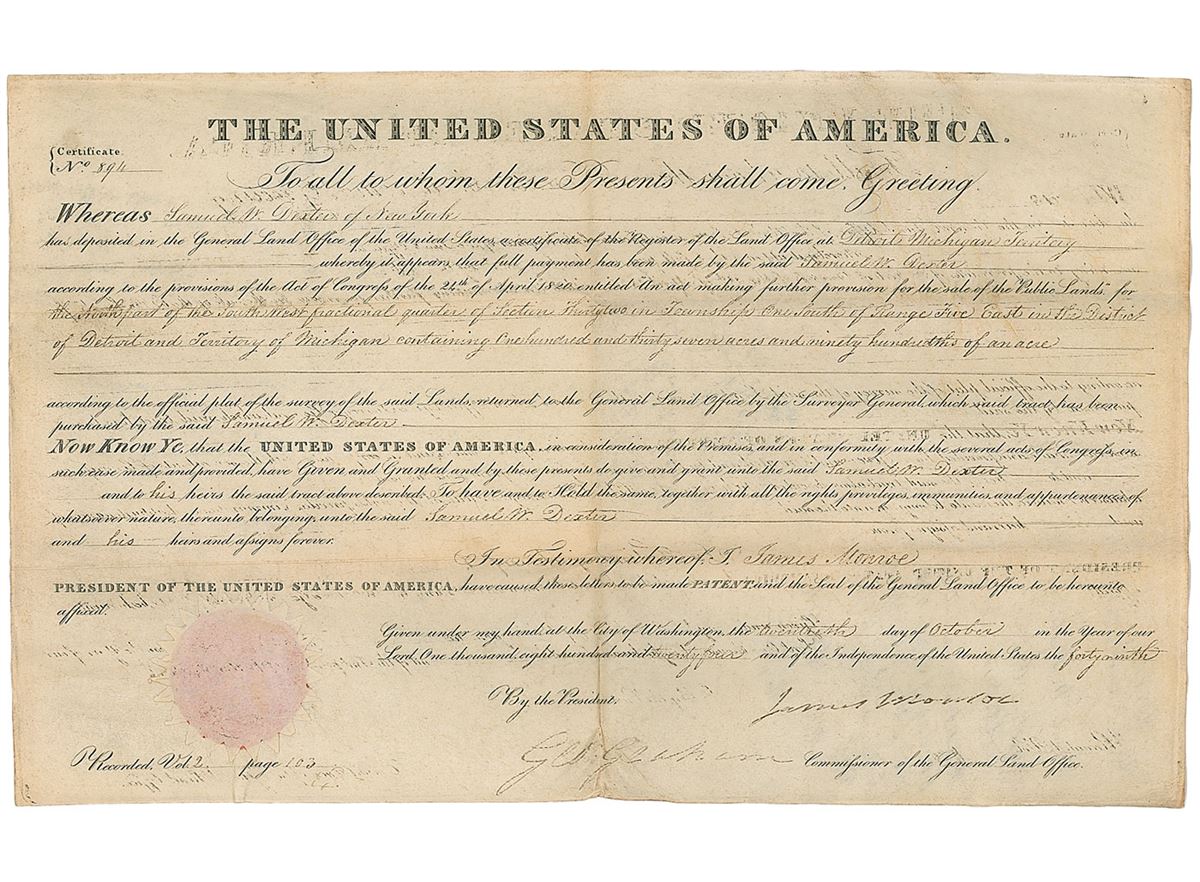 THE UNITED STATES OF AMERICA.
Certificate.
No. 894
To all to whom these Presents shall come, Greeting.
Whereas Samuel W. Dexter of New York
has deposited in the General Land Office of the United States, a certificate of the Register of the Land Office at Detroit Michigan Territory
whereby it appears that full payment has been made by the said Samuel W. Dexter
according to the provisions of the Act of Congress of the 24th of April 1820 entitled "An act making further provision for the sale of the Public Lands," for
the North part of the Southwest fractional quarter of Section Thirty two in Township One South of Range Five East in the District
of Detroit and Territory of Michigan containing One hundred and thirty seven acres and ninety hundredths of an acre
according to the official plat of the survey of the said Lands, returned to the General Land Office by the Surveyor General, which said tract has been
purchased by the said Samuel W. Dexter
Now Know Ye, that the UNITED STATES OF AMERICA, in consideration of the Premises, and in conformity with the several acts of Congress, in
such case made and provided, have Given and Granted and by these presents do give and grant unto the said Samuel W. Dexter
and to his heirs the said tract above described. To have and to Hold the same, together with all the rights privileges, immunities, and appurtenances of
whatsoever nature, thereunto belonging, unto the said Samuel W. Dexter
and his heirs and assigns forever.
In Testimony whereof, I, James Monroe
PRESIDENT OF THE UNITED STATES OF AMERICA, have caused these letters to be made PATENT, and the Seal of the General Land Office to be hereunto
affixed.
Given under my hand, at the City of Washington, the twentieth day of October in the Year of our
Lord, One thousand, eight hundred and twenty four and of the Independence of the United States the forty ninth
By the President.
James Monroe
Geo: Graham Commissioner of the General Land Office.
Recorded, Vol. 2 page 103